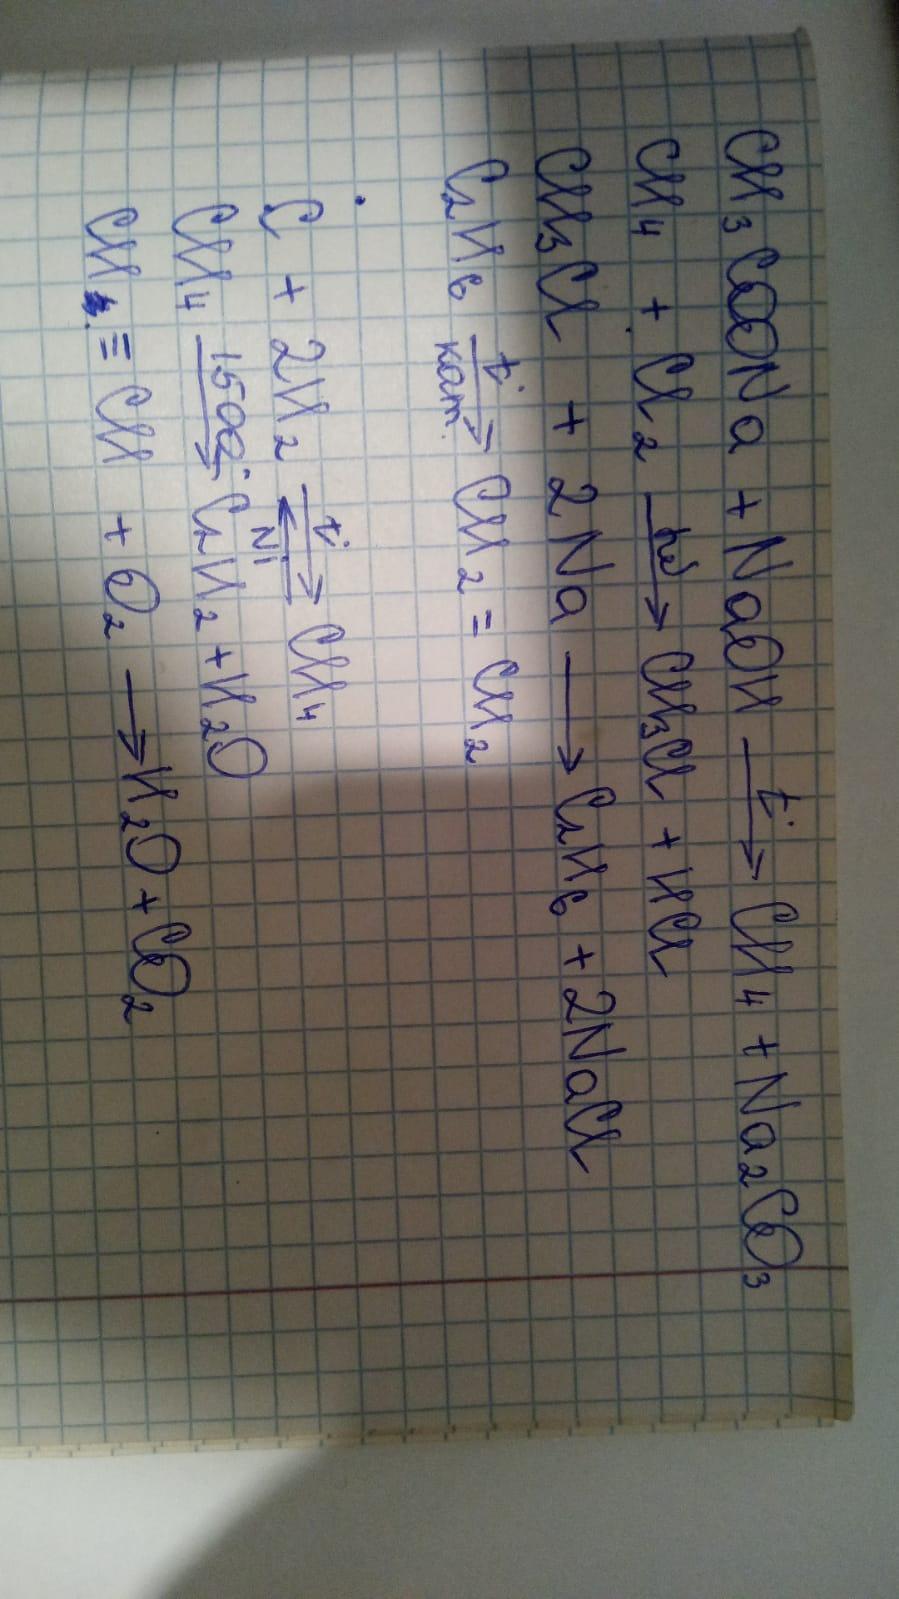 CH₃COONa + NaOH —t°→ CH₄ + Na₂CO₃
CH₄ + Cl₂ —hν→ CH₃Cl + HCl
CH₃Cl + 2Na → C₂H₆ + 2NaCl
C₂H₆ —t° кат.→ CH₂ = CH₂
C + 2H₂ ⇄ t° Ni CH₄
CH₄ —1500°→ C₂H₂ + H₂O
CH ≡ CH + O₂ → H₂O + CO₂